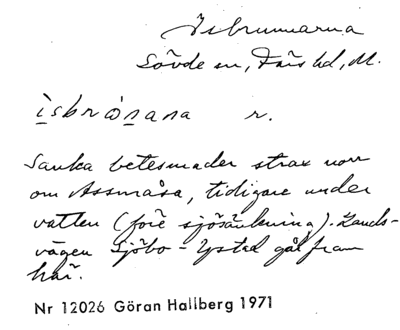 Isbrunnarna
Sövde sn, Färs hd, M.
ìsbrònana r.
Sanka betesmader strax norr
om Assmåsa, tidigare under
vatten (före sjösänkning). Lands-
vägen Sjöbo - Ystad går fram
här.
Nr 12026 Göran Hallberg 1971